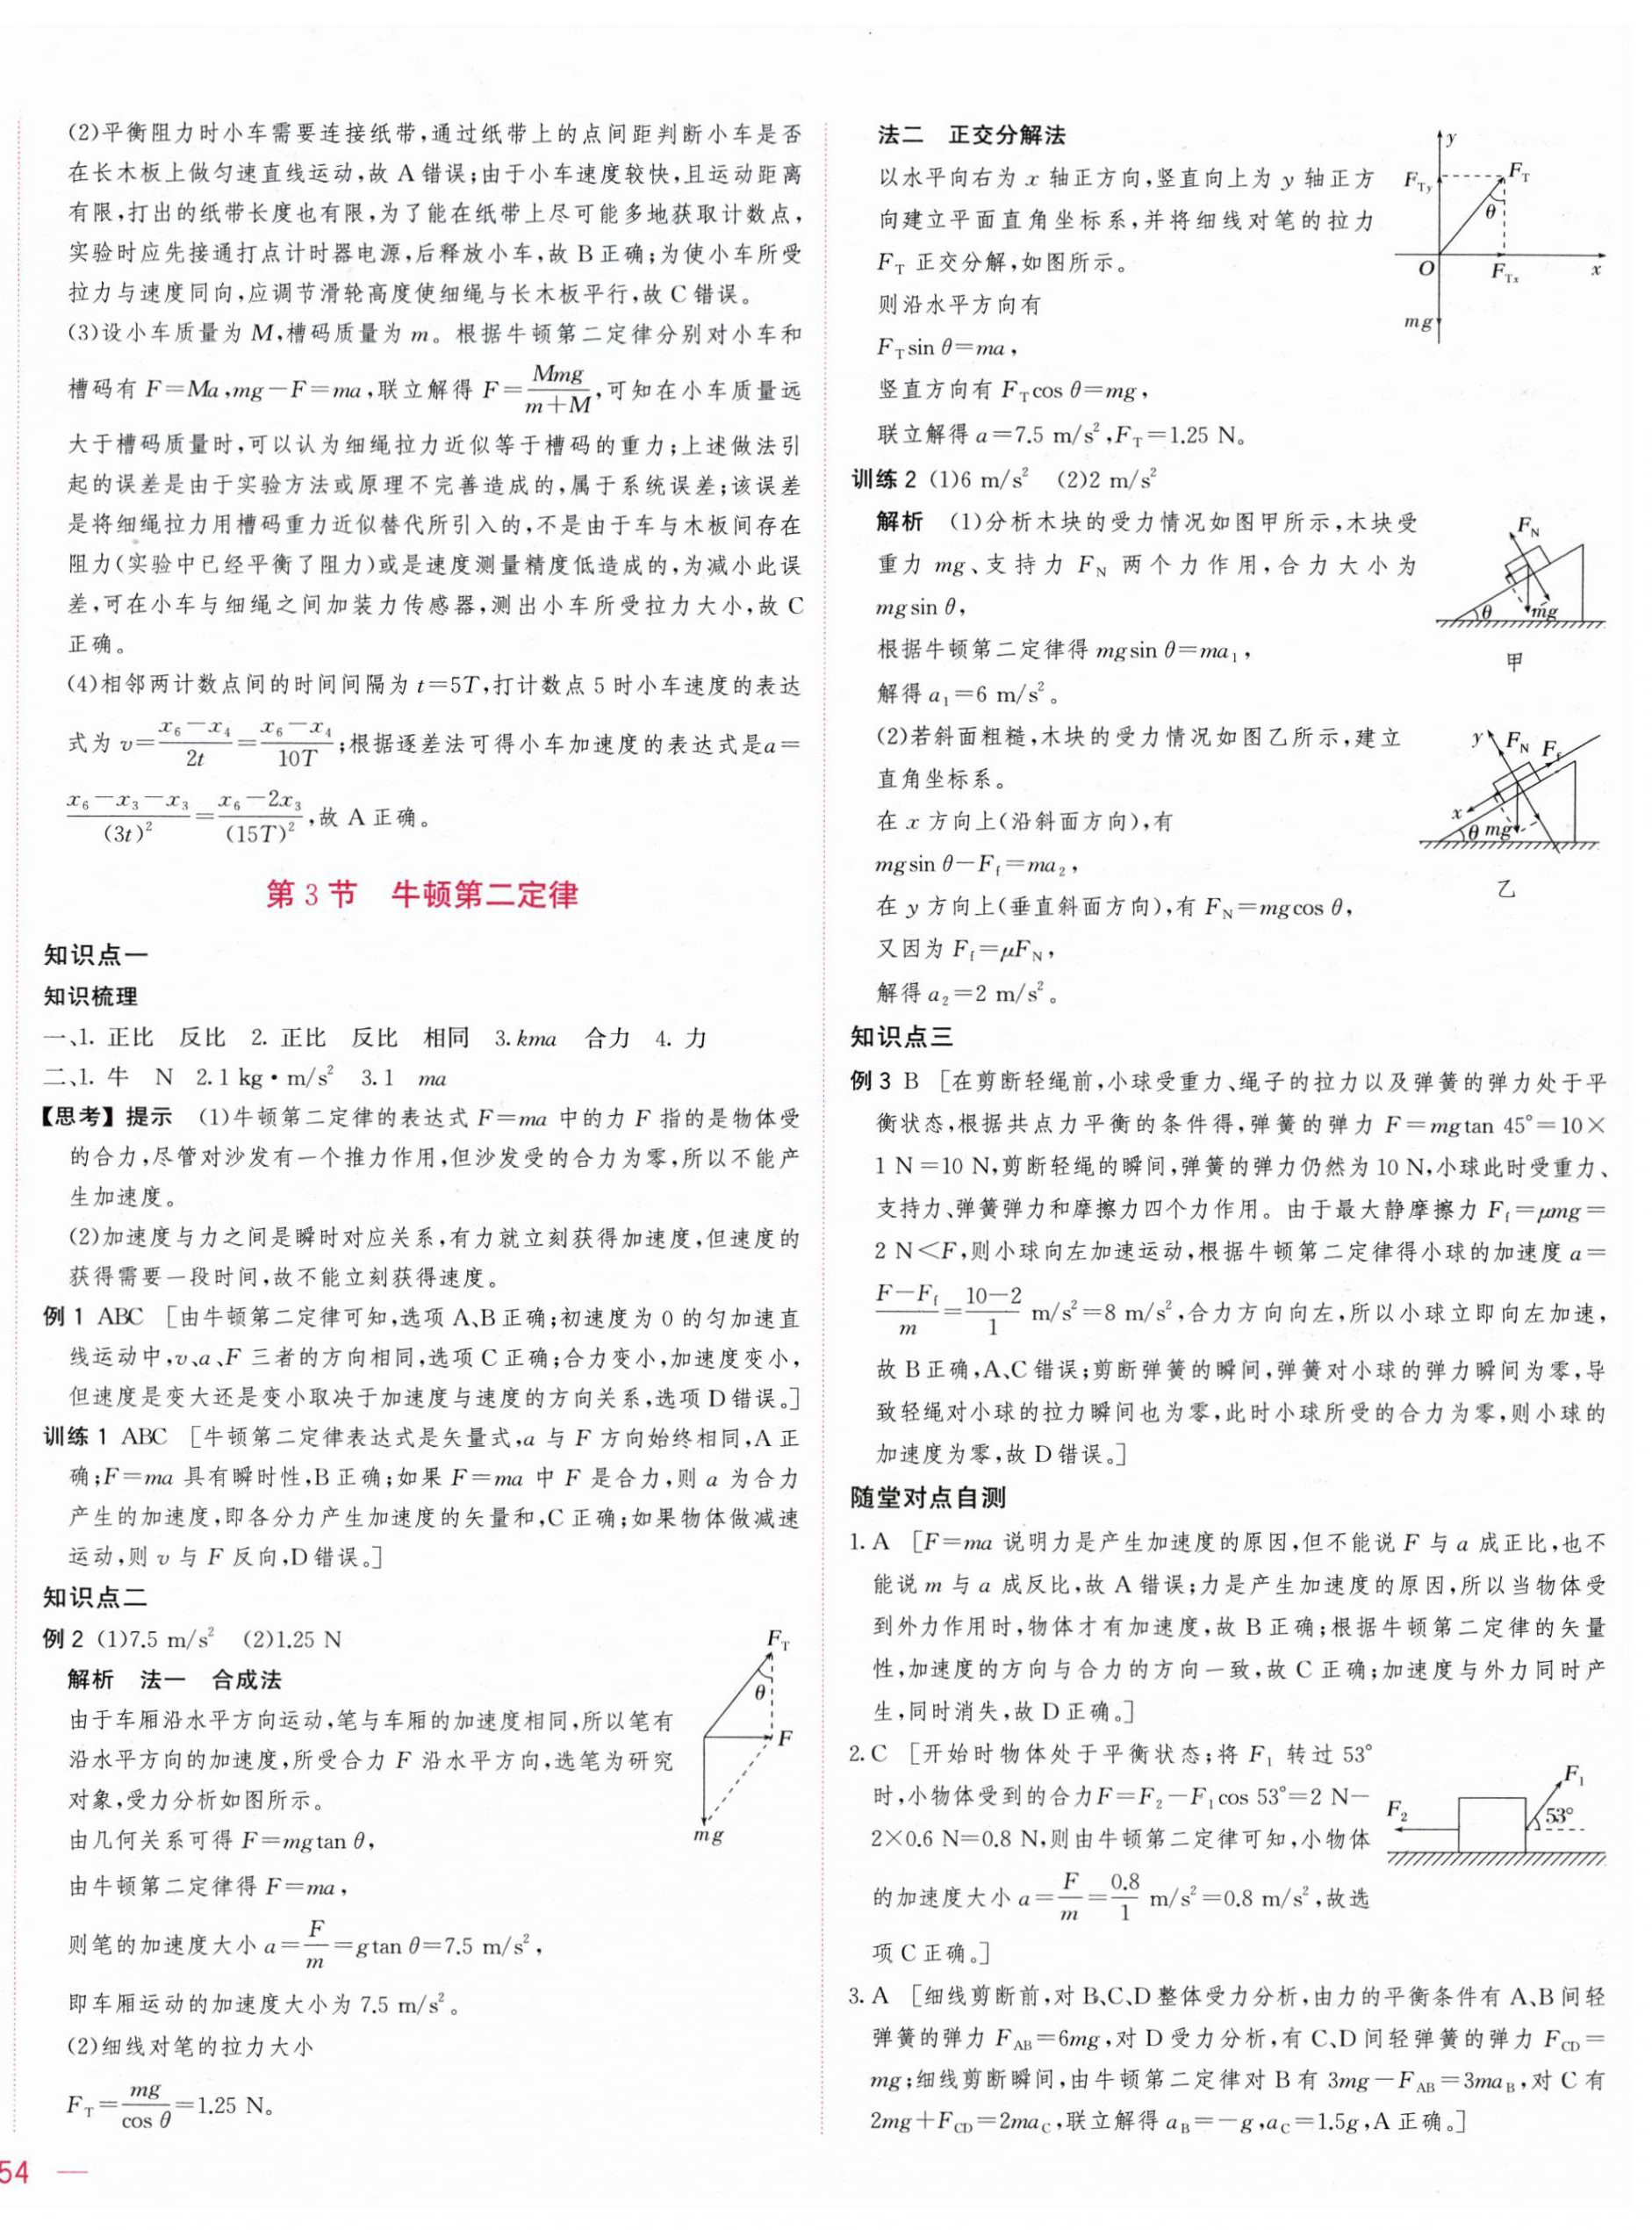 (2)平衡阻力时小车需要连接纸带,通过纸带上的点间距判断小车是否
在长木板上做匀速直线运动,故 A 错误;由于小车速度较快,且运动距离
有限,打出的纸带长度也有限,为了能在纸带上尽可能多地获取计数点,
实验时应先接通打点计时器电源,后释放小车,故 B 正确;为使小车所受
拉力与速度同向,应调节滑轮高度使细绳与长木板平行,故 C 错误。
(3)设小车质量为 M,槽码质量为 m。根据牛顿第二定律分别对小车和
槽码有 F=Ma,mg-F=ma,联立解得 F=Mmg/(m+M),可知在小车质量远
大于槽码质量时,可以认为细绳拉力近似等于槽码的重力;上述做法引
起的误差是由于实验方法或原理不完善造成的,属于系统误差;该误差
是将细绳拉力用槽码重力近似替代所引入的,不是由于车与木板间存在
阻力(实验中已经平衡了阻力)或是速度测量精度低造成的,为减小此误
差,可在小车与细绳之间加装力传感器,测出小车所受拉力大小,故 C
正确。
(4)相邻两计数点间的时间间隔为 t=5T,打计数点 5 时小车速度的表达
式为 v=(x₆-x₄)/2t=(x₆-x₄)/10T;根据逐差法可得小车加速度的表达式是a=
(x₆-x₃-x₃)/(3t)²=(x₆-2x₃)/(15T)²,故 A 正确。
第 3 节 牛顿第二定律
知识点一
知识梳理
一、1. 正比 反比 2. 正比 反比 相同 3. kma 合力 4. 力
二、1. 牛 N 2. 1 kg·m/s² 3. 1 ma
【思考】提示 (1)牛顿第二定律的表达式 F=ma 中的力 F 指的是物体受
的合力,尽管对沙发有一个推力作用,但沙发受的合力为零,所以不能产
生加速度。
(2)加速度与力之间是瞬时对应关系,有力就立刻获得加速度,但速度的
获得需要一段时间,故不能立刻获得速度。
例 1 ABC [由牛顿第二定律可知,选项 A、B 正确;初速度为 0 的匀加速直
线运动中,v、a、F 三者的方向相同,选项 C 正确;合力变小,加速度变小,
但速度是变大还是变小取决于加速度与速度的方向关系,选项 D 错误。]
训练 1 ABC [牛顿第二定律表达式是矢量式,a 与 F 方向始终相同,A 正
确;F=ma 具有瞬时性,B 正确;如果 F=ma 中 F 是合力,则 a 为合力
产生的加速度,即各分力产生加速度的矢量和,C 正确;如果物体做减速
运动,则 v 与 F 反向,D 错误。]
知识点二
例 2 (1)7.5 m/s² (2)1.25 N
解析 法一 合成法
由于车厢沿水平方向运动,笔与车厢的加速度相同,所以笔有
沿水平方向的加速度,所受合力 F 沿水平方向,选笔为研究
对象,受力分析如图所示。
由几何关系可得 F=mgtan θ,
由牛顿第二定律得 F=ma,
则笔的加速度大小 a=F/m=gtan θ=7.5 m/s²,
即车厢运动的加速度大小为 7.5 m/s²。
(2)细线对笔的拉力大小
F_T=mg/cos θ=1.25 N。
F_T
θ
F
mg
54 —
法二 正交分解法
以水平向右为 x 轴正方向,竖直向上为 y 轴正方
向建立平面直角坐标系,并将细线对笔的拉力
F_T 正交分解,如图所示。
则沿水平方向有
F_T sin θ=ma,
竖直方向有 F_T cos θ=mg,
联立解得 a=7.5 m/s²,F_T=1.25 N。
y
F_Ty
F_T
θ
O
F_Tx
x
mg
训练 2 (1)6 m/s² (2)2 m/s²
解析 (1)分析木块的受力情况如图甲所示,木块受
重力 mg、支持力 F_N 两个力作用,合力大小为
mgsin θ,
根据牛顿第二定律得 mgsin θ=ma₁,
解得 a₁=6 m/s²。
F_N
θ
mg
甲
(2)若斜面粗糙,木块的受力情况如图乙所示,建立
直角坐标系。
在 x 方向上(沿斜面方向),有
mgsin θ-F_f=ma₂,
在 y 方向上(垂直斜面方向),有 F_N=mgcos θ,
又因为 F_f=μF_N,
解得 a₂=2 m/s²。
y
F_N
F_f
x
θ
mg
乙
知识点三
例 3 B [在剪断轻绳前,小球受重力、绳子的拉力以及弹簧的弹力处于平
衡状态,根据共点力平衡的条件得,弹簧的弹力 F=mgtan 45°=10×
1 N=10 N,剪断轻绳的瞬间,弹簧的弹力仍然为 10 N,小球此时受重力、
支持力、弹簧弹力和摩擦力四个力作用。由于最大静摩擦力 F_f=μmg=
2 N<F,则小球向左加速运动,根据牛顿第二定律得小球的加速度 a=
(F-F_f)/m=(10-2)/1 m/s²=8 m/s²,合力方向向左,所以小球立即向左加速,
故 B 正确,A、C 错误;剪断弹簧的瞬间,弹簧对小球的弹力瞬间为零,导
致轻绳对小球的拉力瞬间也为零,此时小球所受的合力为零,则小球的
加速度为零,故 D 错误。]
随堂对点自测
1. A [F=ma 说明力是产生加速度的原因,但不能说 F 与 a 成正比,也不
能说 m 与 a 成反比,故 A 错误;力是产生加速度的原因,所以当物体受
到外力作用时,物体才有加速度,故 B 正确;根据牛顿第二定律的矢量
性,加速度的方向与合力的方向一致,故 C 正确;加速度与外力同时产
生,同时消失,故 D 正确。]
2. C [开始时物体处于平衡状态;将 F₁ 转过 53°
时,小物体受到的合力F=F₂-F₁cos 53°=2 N-
2×0.6 N=0.8 N,则由牛顿第二定律可知,小物体
的加速度大小 a=F/m=0.8/1 m/s²=0.8 m/s²,故选
项 C 正确。]
F₁
F₂
53°
3. A [细线剪断前,对 B、C、D 整体受力分析,由力的平衡条件有 A、B 间轻
弹簧的弹力 F_AB=6mg,对 D 受力分析,有 C、D 间轻弹簧的弹力 F_CD=
mg;细线剪断瞬间,由牛顿第二定律对 B 有 3mg-F_AB=3ma_B,对 C 有
2mg+F_CD=2ma_C,联立解得 a_B=-g,a_C=1.5g,A 正确。]